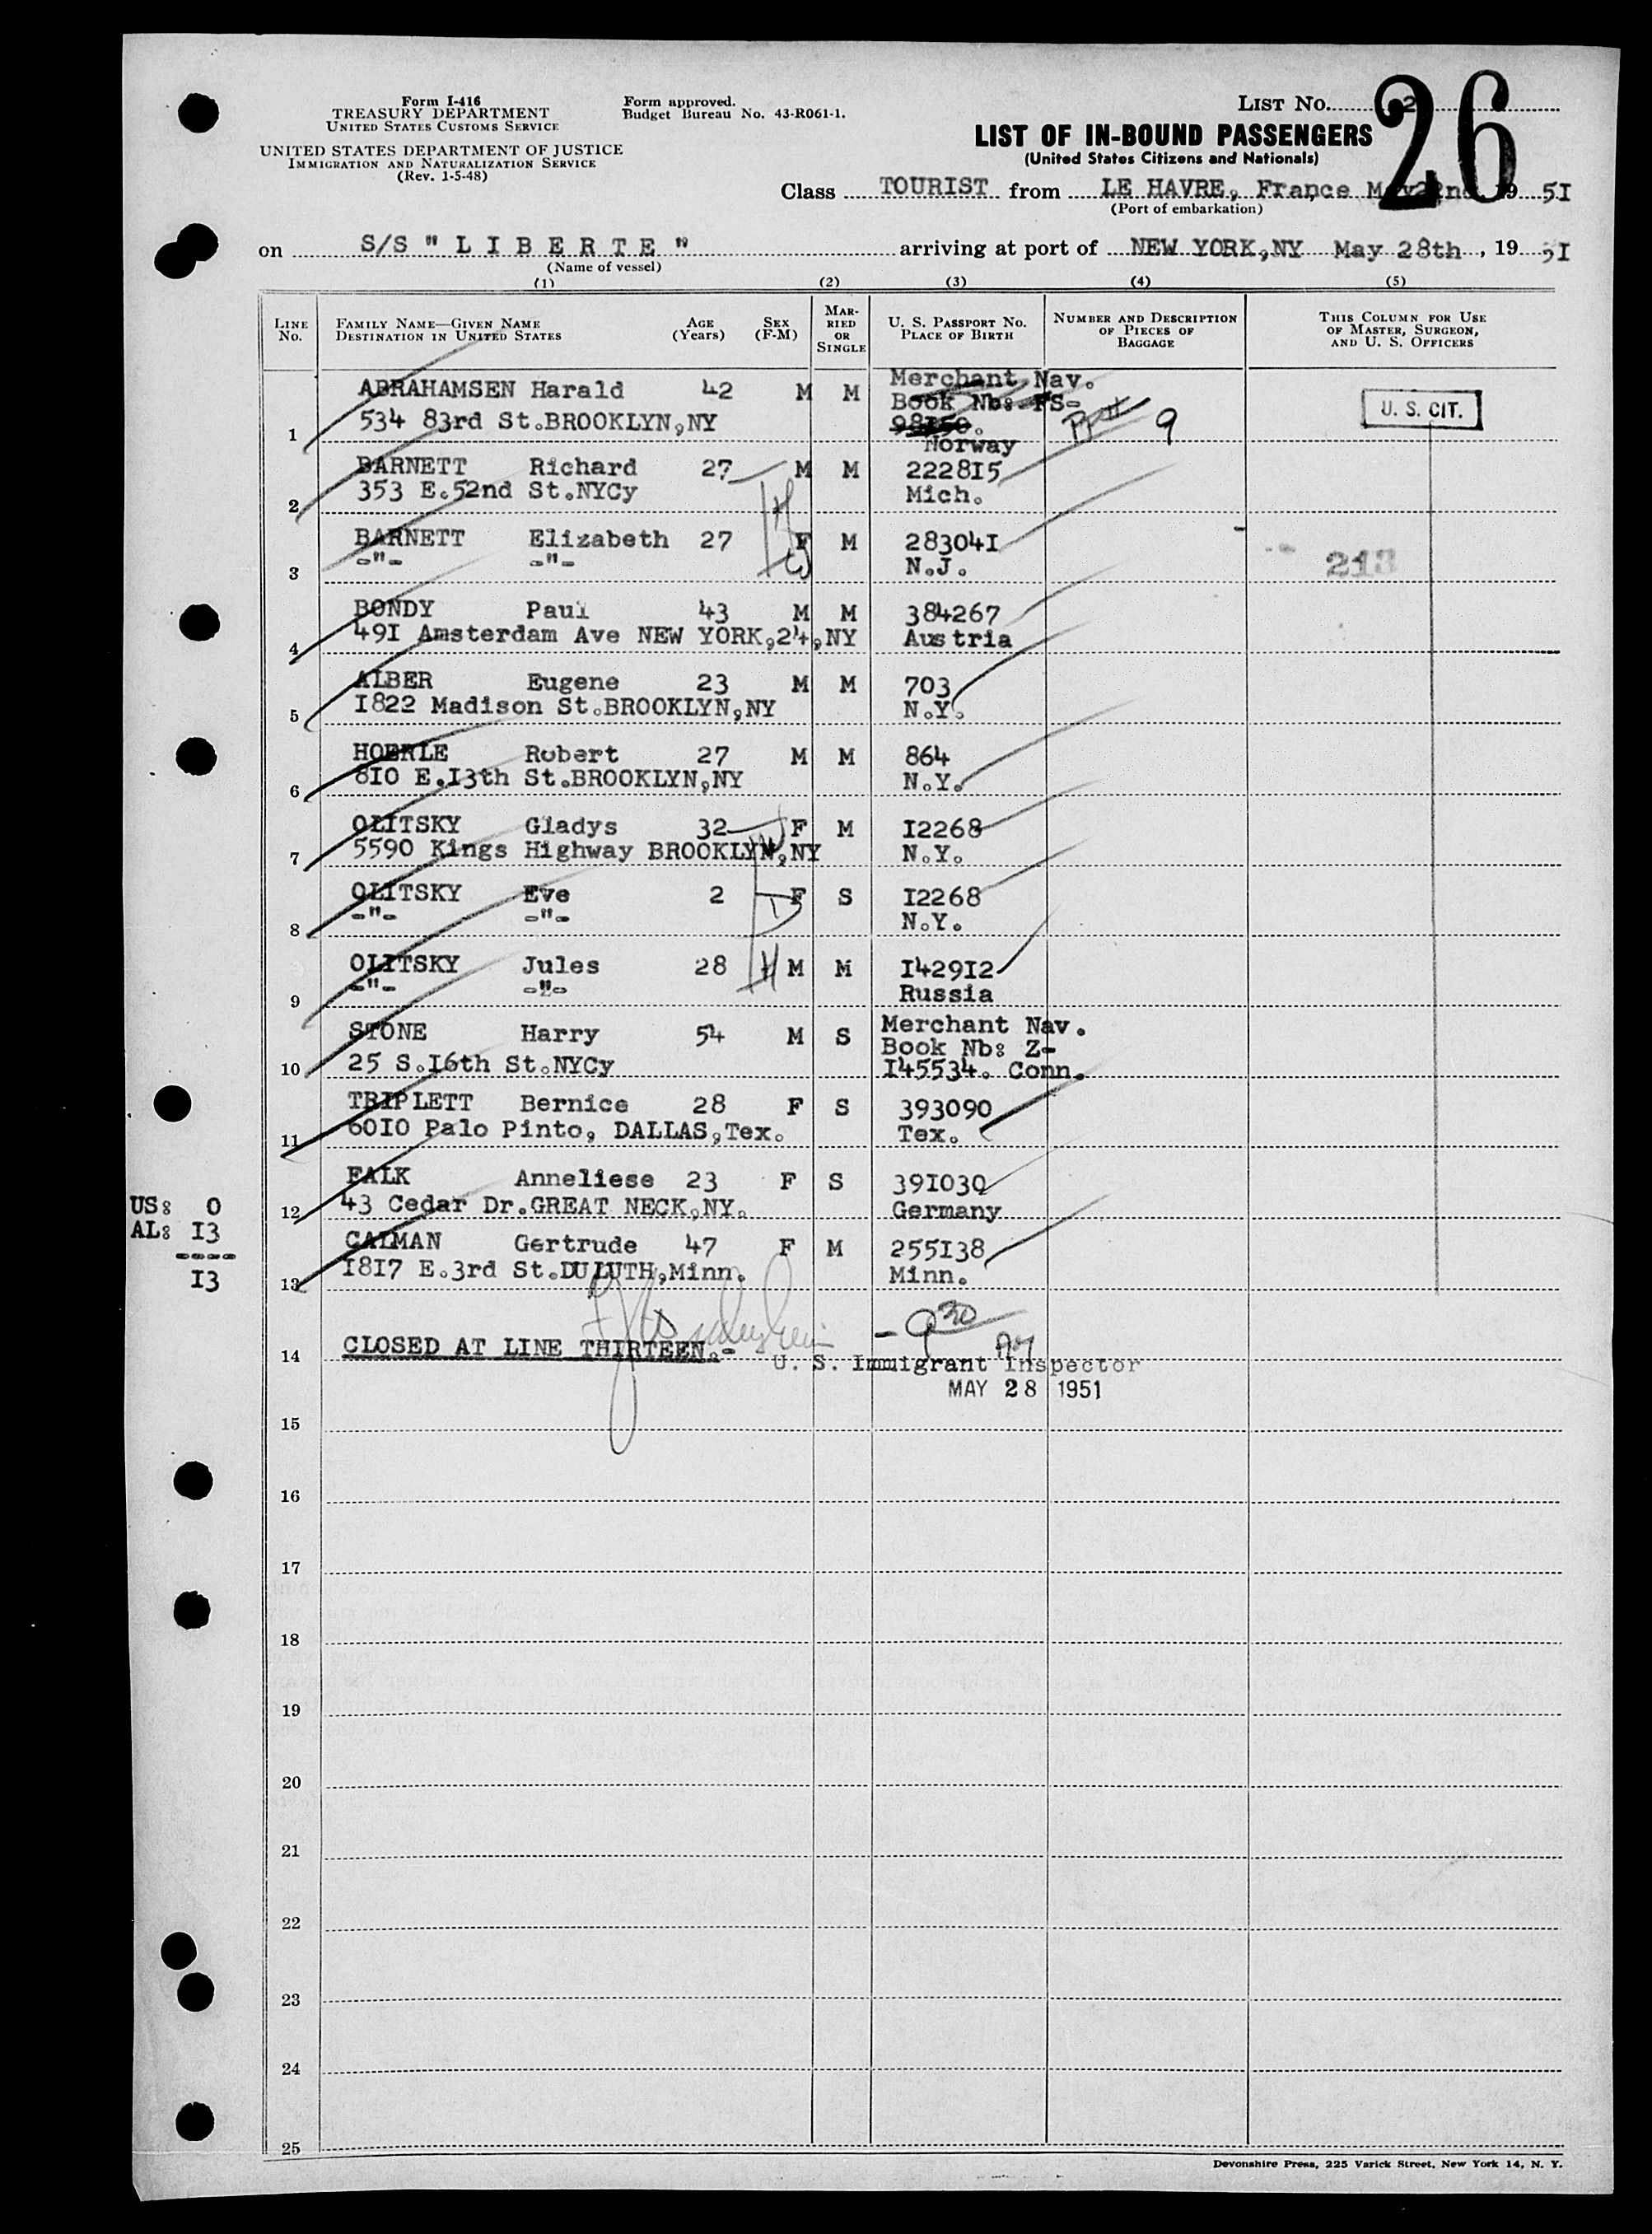 Form I-416
TREASURY DEPARTMENT
UNITED STATES CUSTOMS SERVICE
UNITED STATES DEPARTMENT OF JUSTICE
IMMIGRATION AND NATURALIZATION SERVICE
(Rev. 1-5-48)
Form approved.
Budget Bureau No. 43-R061-1.
LIST No. 2
26
LIST OF IN-BOUND PASSENGERS
(United States Citizens and Nationals)
Class TOURIST from LE HAVRE, France May 22nd 19 51
(Port of embarkation)
on S/S " L I B E R T E " arriving at port of NEW YORK,NY May 28th , 19 51
(Name of vessel)
(1) (2) (3) (4) (5)
LINE No.
FAMILY NAME—GIVEN NAME
DESTINATION IN UNITED STATES
AGE (Years)
SEX (F-M)
MARRIED OR SINGLE
U. S. PASSPORT NO.
PLACE OF BIRTH
NUMBER AND DESCRIPTION OF PIECES OF BAGGAGE
THIS COLUMN FOR USE OF MASTER, SURGEON, AND U. S. OFFICERS
ABRAHAMSEN Harald 42 M M Merchant Nav.
Book Nb: FS-
534 83rd St.BROOKLYN,NY
1 Norway 9 U. S. CIT.
BARNETT Richard 27 M M 222815
2 353 E.52nd St.NYCy Mich.
BARNETT Elizabeth 27 F M 283041
3 -"- -"- N.J. 213
BONDY Paul 43 M M 384267
4 491 Amsterdam Ave NEW YORK,24,NY Austria
ALBER Eugene 23 M M 703
5 1822 Madison St.BROOKLYN,NY N.Y.
HOERLE Robert 27 M M 864
6 810 E.13th St.BROOKLYN,NY N.Y.
OLITSKY Gladys 32 F M 12268
7 5590 Kings Highway BROOKLYN,NY N.Y.
OLITSKY Eve 2 F S 12268
8 -"- -"- N.Y.
OLITSKY Jules 28 M M 142912
9 -"- -"- Russia
STONE Harry 54 M S Merchant Nav.
Book Nb: Z-
10 25 S.16th St.NYCy 145534. Conn.
TRIPLETT Bernice 28 F S 393090
11 6010 Palo Pinto, DALLAS,Tex. Tex.
FALK Anneliese 23 F S 391030
12 43 Cedar Dr.GREAT NECK,NY. Germany
CALMAN Gertrude 47 F M 255138
13 1817 E.3rd St.DULUTH,Minn. Minn.
US: 0
AL: 13
----
13
- 9 30
14 CLOSED AT LINE THIRTEEN.-
U. S. Immigrant Inspector
MAY 28 1951
15
16
17
18
19
20
21
22
23
24
25
Devonshire Press, 225 Varick Street, New York 14, N. Y.